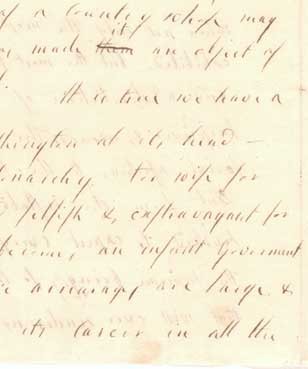 of a Country whose may
it
made them an object of
It is true we have a
hington at its head –
onarchy. Too wise for
selfish & extravagant for
become, an infant Goverment
arrearages are large &
its career in all the